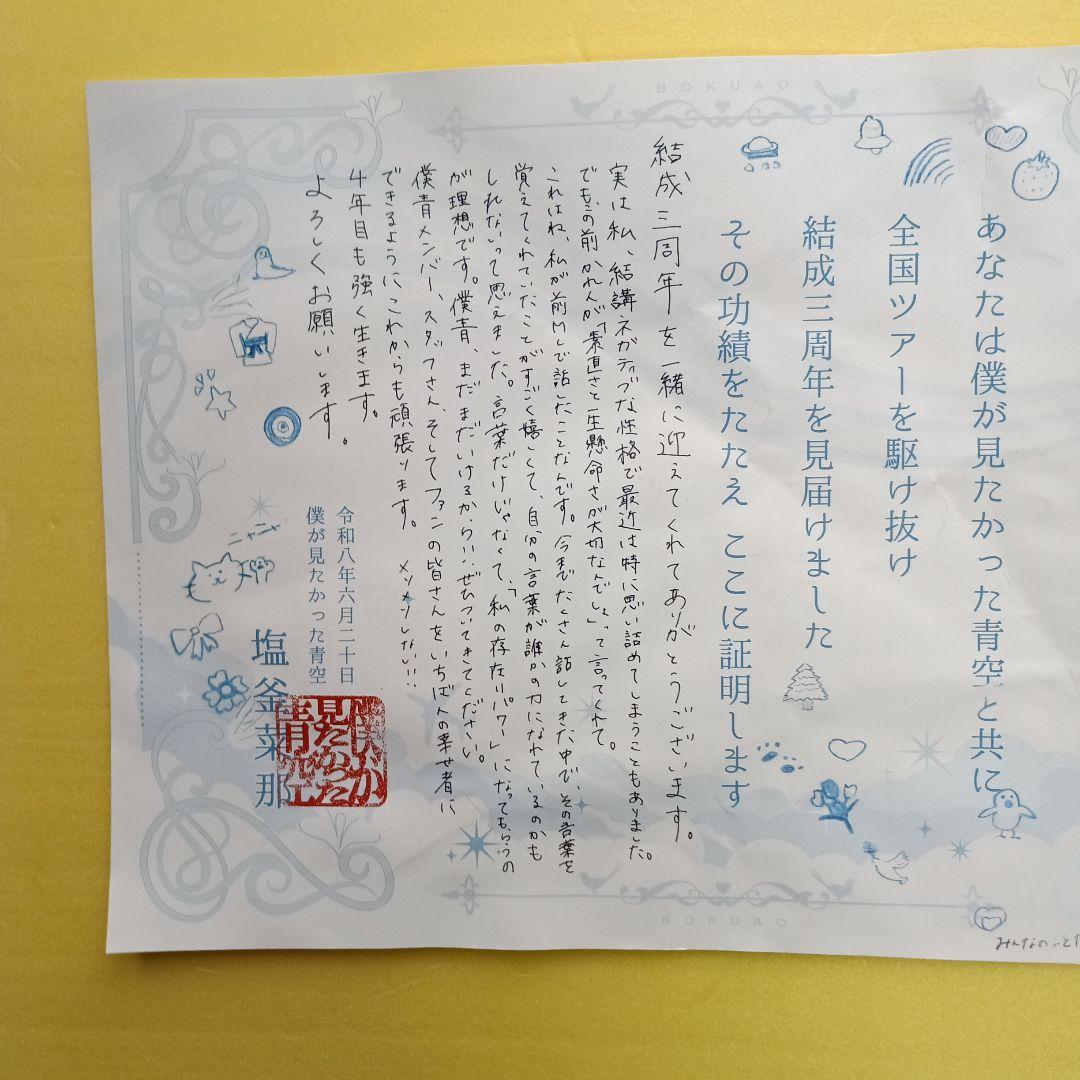 BOKUAO
あなたは僕が見たかった青空と共に
全国ツアーを駆け抜け
結成三周年を見届けました
その功績をたたえ ここに証明します
結成三周年を一緒に迎えてくれてありがとうございます。
実は私、結講ネガティブな性格で最近は特に思い詰めてしまうこともありました。
でもこの前かれんが「素直さと一生懸命さが大切なんでしょ」って言ってくれて。
これはね、私が前MCで話したことなんです。今までたくさん話してきた中で、その言葉を
覚えてくれていたことがすごく嬉しくて、自分の言葉が誰かの力になれているのかも
しれないって思えました。言葉だけじゃなくて、「私の存在=パワー」になってもらうの
が理想です。僕青、まだまだいけるからいい、ぜひついてきてください。
僕青メンバー、スタッフさん、そしてファンの皆さんをいちばんの幸せ者に
できるようにこれからも頑張ります。 メソメソしない!!
4年目も強く生きます。
よろしくお願いします。
令和八年六月二十日
僕が見たかった青空
塩釜菜那
僕が
見たかった
青空
ニャニャ
BOKUAO
みんなのこと